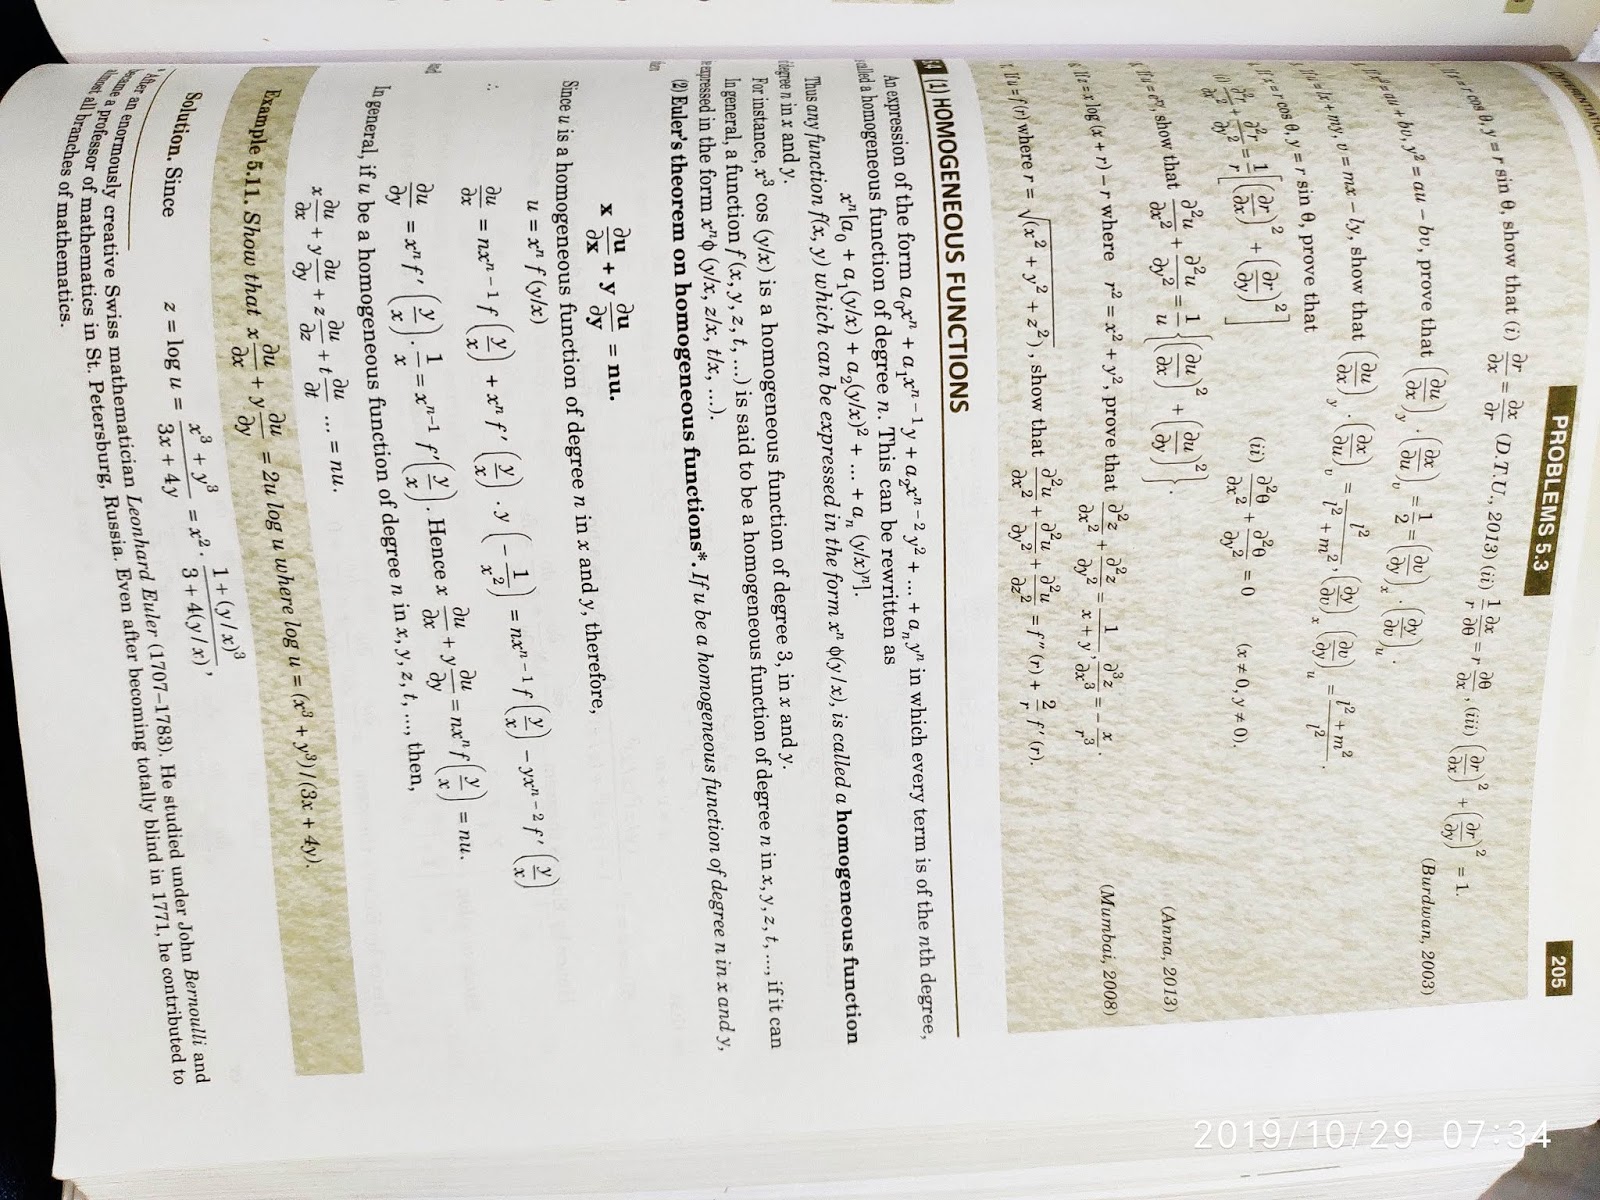 DIFFERENTIATION
PROBLEMS 5.3
205
r cos θ, y = r sin θ, show that (i) ∂r/∂x = ∂x/∂r (D.T.U., 2013) (ii) 1/r ∂x/∂θ = r ∂θ/∂x, (iii) (∂r/∂x)² + (∂r/∂y)² = 1.
= au + bv, y² = au − bv, prove that (∂u/∂x)y · (∂x/∂u)v = 1/2 = (∂v/∂y)x · (∂y/∂v)u. (Burdwan, 2003)
= lx + my, v = mx − ly, show that (∂u/∂x)y · (∂x/∂u)v = l²/(l² + m²), (∂y/∂v)x (∂v/∂y)u = (l² + m²)/l².
= r cos θ, y = r sin θ, prove that
(i) ∂²r/∂x² + ∂²r/∂y² = 1/r [(∂r/∂x)² + (∂r/∂y)²] (ii) ∂²θ/∂x² + ∂²θ/∂y² = 0 (x ≠ 0, y ≠ 0).
show that ∂²u/∂x² + ∂²u/∂y² = 1/u {(∂u/∂x)² + (∂u/∂y)²}. (Anna, 2013)
If z = x log (x + r) − r where r² = x² + y², prove that ∂²z/∂x² + ∂²z/∂y² = 1/(x + y), ∂³z/∂x³ = − x/r³. (Mumbai, 2008)
If u = f(r) where r = √(x² + y² + z²), show that ∂²u/∂x² + ∂²u/∂y² + ∂²u/∂z² = f″ (r) + 2/r f′ (r).
(1) HOMOGENEOUS FUNCTIONS
An expression of the form a₀xⁿ + a₁xⁿ⁻¹y + a₂xⁿ⁻²y² + ... + aₙyⁿ in which every term is of the nth degree,
called a homogeneous function of degree n. This can be rewritten as
xⁿ[a₀ + a₁(y/x) + a₂(y/x)² + ... + aₙ (y/x)ⁿ].
Thus any function f(x, y) which can be expressed in the form xⁿ ϕ(y/x), is called a homogeneous function
degree n in x and y.
For instance, x³ cos (y/x) is a homogeneous function of degree 3, in x and y.
In general, a function f (x, y, z, t, ...) is said to be a homogeneous function of degree n in x, y, z, t, ..., if it can
expressed in the form xⁿϕ (y/x, z/x, t/x, ...).
(2) Euler's theorem on homogeneous functions*. If u be a homogeneous function of degree n in x and y,
x ∂u/∂x + y ∂u/∂y = nu.
Since u is a homogeneous function of degree n in x and y, therefore,
u = xⁿ f (y/x)
∴ ∂u/∂x = nxⁿ⁻¹ f (y/x) + xⁿ f′ (y/x) . y (− 1/x²) = nxⁿ⁻¹ f (y/x) − yxⁿ⁻² f′ (y/x)
and ∂u/∂y = xⁿ f′ (y/x) . 1/x = xⁿ⁻¹ f′ (y/x). Hence x ∂u/∂x + y ∂u/∂y = nxⁿ f (y/x) = nu.
In general, if u be a homogeneous function of degree n in x, y, z, t, ..., then,
x ∂u/∂x + y ∂u/∂y + z ∂u/∂z + t ∂u/∂t ... = nu.
Example 5.11. Show that x ∂u/∂x + y ∂u/∂y = 2u log u where log u = (x³ + y³)/(3x + 4y).
Solution. Since z = log u = (x³ + y³)/(3x + 4y) = x² · (1 + (y/x)³)/(3 + 4(y/x)),
* After an enormously creative Swiss mathematician Leonhard Euler (1707–1783). He studied under John Bernoulli and
became a professor of mathematics in St. Petersburg, Russia. Even after becoming totally blind in 1771, he contributed to
almost all branches of mathematics.
2019/10/29 07:34